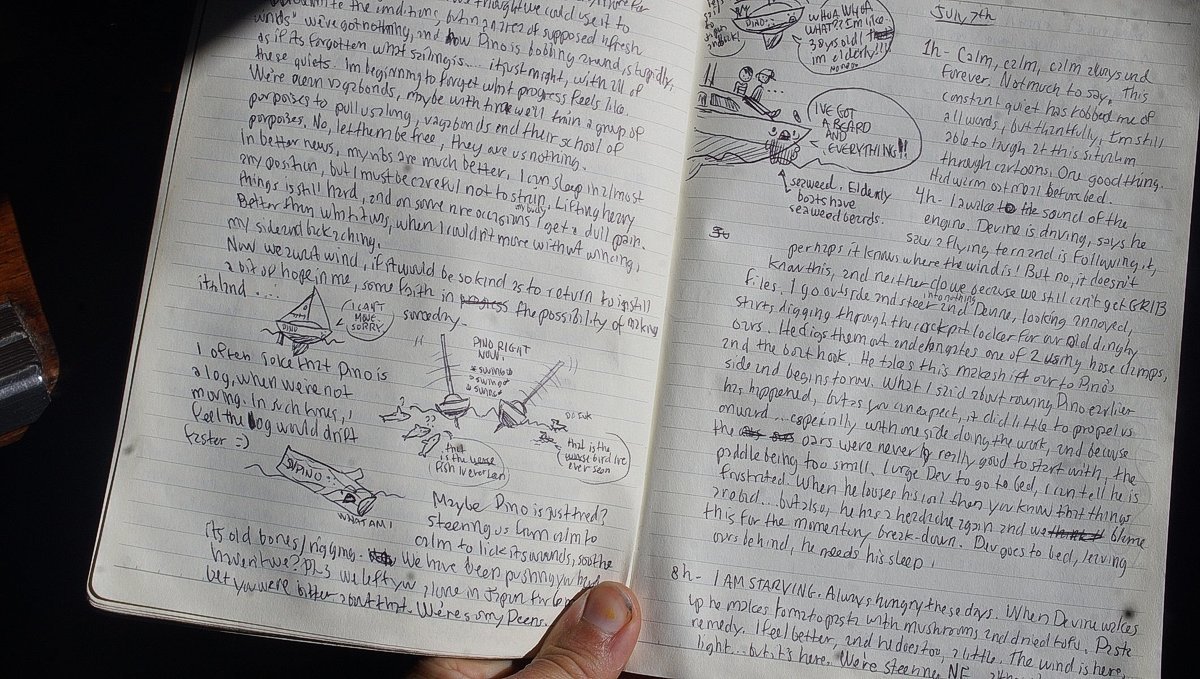 thought we could use it to
write the indition, but in a rice of supposed "fresh
winds" we've got nothing, and now Pino is bobbing around, stupidly,
as if its forgotten what sailing is... it just might, with all of
these quiets. Im beginning to forget what progress feels like.
We're ocean vagabonds, maybe with time we'll train a group of
porpoises to pull us along, vagabonds and their school of
porpoises. No, let them be free, they are us nothing.
In better news, my ribs are much better, I can sleep in almost
any position, but I must be careful not to strain. Lifting heavy
things is still hard, and on some rare occasions I get a dull pain.
Better than what it was, when I couldn't move without wincing,
my side and back aching.
Now we await wind, if it would be so kind as to return to instill
a bit of hope in me, some faith in the possibility of making
it to land.... someday.
PINO
I CAN'T
MOVE
SORRY
I often joke that Pino is
a log, when we're not
moving. In such times, I
feel the log would drift
faster =)
PINO RIGHT
NOW:
*SWING*
*SWING*
*SWING*
that
is the worse
fish Iv ever seen
that is the
worse bird I've
ever seen
PINO
WHAT AM I
Maybe Pino is just tired?
steering us from calm to
calm to lick its wounds, soothe
its old bones/rigging. We have been pushing you hard
haven't we? Pl-s we left you alone in Japan for
bet you were bitter about that. We're sorry Peens.
PINO
WHOA WHOA
WHAT?? Im like
38 yrs old!
im elderly!!!
I'VE GOT
A BEARD
AND
EVERYTHING!!
seaweed. Elderly
boats have
seaweed beards.
JULY 7th
1h- Calm, calm, calm always and
forever. Not much to say. This
constant quiet has robbed me of
all words, but thankfully, I'm still
able to laugh at this situation
through cartoons. One good thing.
Had warm oatmeal before bed.
4h- I awake to the sound of the
engine. Devine is driving, says he
saw a flying tern and is following it,
perhaps it knows where the wind is! But no, it doesn't
know this, and neither do we because we still can't get GRIB
files. I go outside and steer into nothing and Devine, looking annoyed,
starts digging through the cockpit locker for our old dinghy
oars. He digs them out and elongates one of 2 using hose clamps,
and the boat hook. He takes this makeshift oar to Pino's
side and begins to row. What I said about rowing Pino earlier
has happened, but as you can expect, it did little to propel us
onward... especially with one side doing the work, and because
the oars were never really good to start with, the
paddle being too small. I urge Dev to go to bed, I can tell he is
frustrated. When he looses his cool then you know that things
are bad... but also, he has a headache again and we blame
this for the momentary break-down. Dev goes to bed, leaving
oars behind, he needs his sleep!
8h- I AM STARVING. Always hungry these days. When Devine wakes
up he makes tomato pasta with mushrooms and dried tofu. Paste
remedy. I feel better, and he does too, a little. The wind is here,
light... but, it's here. We're steering NE